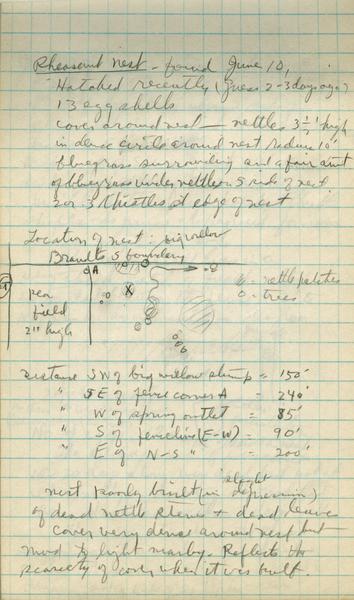 Pheasant nest - found June 10,
Hatched recently (guess 2-3 days ago)
13 egg shells
cover around nest - nettles 3 1/2' high
in dense circle around nest radius 10'
bluegrass surrounding and a fair amt
of bluegrass under nettles on S side of nest.
2 or 3 thistles at edge of nest
Location of nest: big willow
Brandts S boundary
A
E
X
pea
field
2" high
- nettle patches
o - trees
Distance SW of big willow stump = 150'
" SE of fence corner A = 240'
" W of spring outlet = 85'
" S of fenceline (E-W) = 90'
" E of N-S " = 200'
nest poorly built (in slight depression)
of dead nettle stems + dead leaves
Cover very dense around nest but
mod to light nearby. Reflects the
scarcity of cover when it was built.